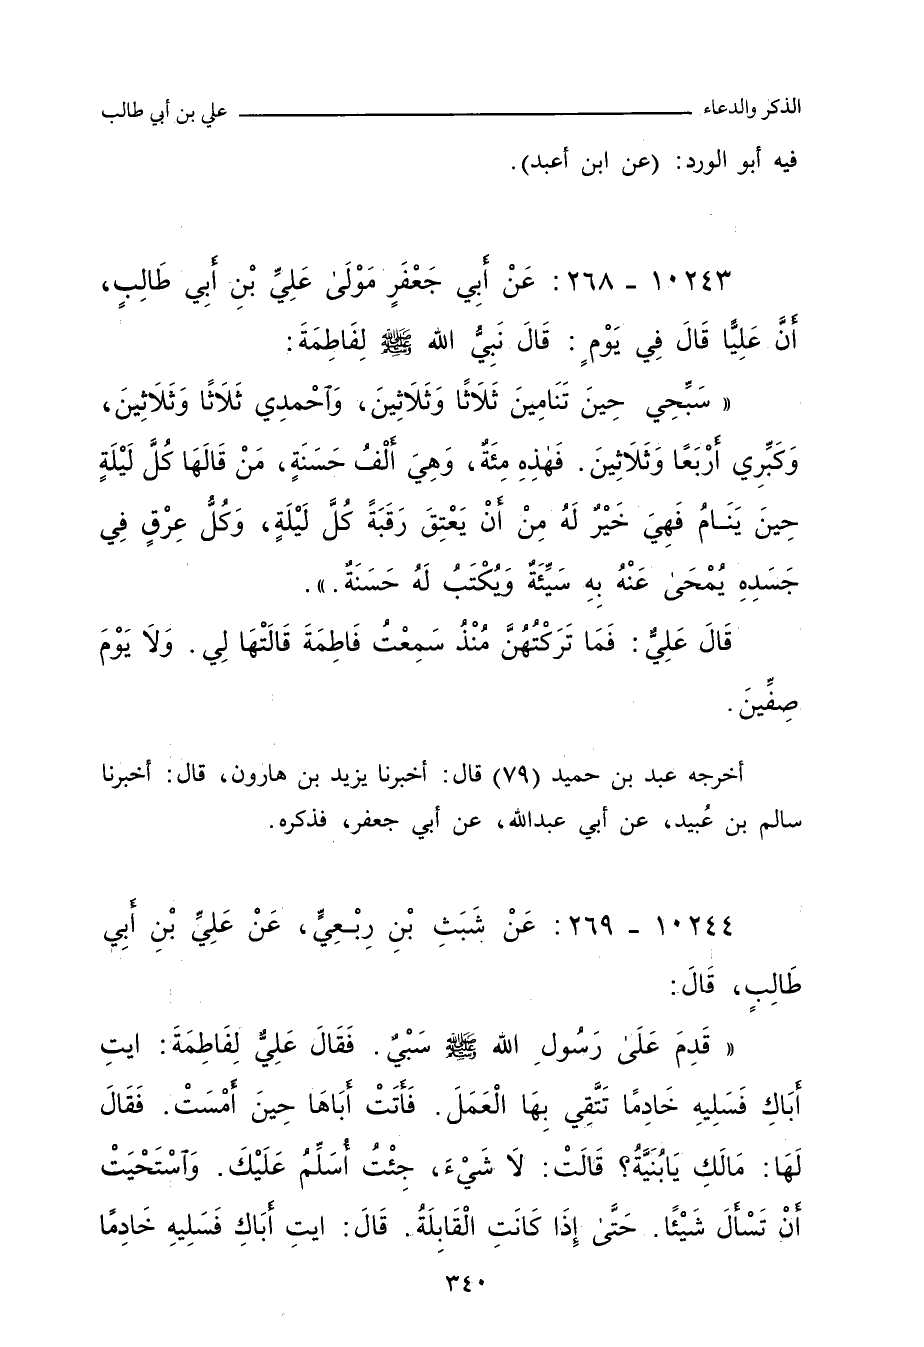 الذكر والدعاء ــــــــــــــــــــــــــــــــ علي بن أبي طالب
فيه أبو الورد: (عن ابن أعبد).
١٠٢٤٣ - ٢٦٨: عَنْ أَبِي جَعْفَرٍ مَوْلَىٰ عَلِيِّ بْنِ أَبِي طَالِبٍ،
أَنَّ عَلِيًّا قَالَ فِي يَوْمٍ: قَالَ نَبِيُّ الله ﷺ لِفَاطِمَةَ:
« سَبِّحِي حِينَ تَنَامِينَ ثَلَاثًا وَثَلَاثِينَ، وَٱحْمدِي ثَلَاثًا وَثَلَاثِينَ،
وَكَبِّرِي أَرْبَعًا وَثَلَاثِينَ. فَهٰذِهِ مِئَةٌ، وَهِيَ أَلْفُ حَسَنَةٍ، مَنْ قَالَهَا كُلَّ لَيْلَةٍ
حِينَ يَنَـامُ فَهِيَ خَيْرٌ لَهُ مِنْ أَنْ يَعْتِقَ رَقَبَةً كُلَّ لَيْلَةٍ، وَكُلُّ عِرْقٍ فِي
جَسَدِهِ يُمْحَىٰ عَنْهُ بِهِ سَيِّئَةٌ وَيُكْتَبُ لَهُ حَسَنَةٌ.».
قَالَ عَلِيٌّ: فَمَا تَرَكْتُهُنَّ مُنْذُ سَمِعْتُ فَاطِمَةَ قَالَتْهَا لِي. وَلَا يَوْمَ
صِفِّينَ.
أخرجه عبد بن حميد (٧٩) قال: أخبرنا يزيد بن هارون، قال: أخبرنا
سالم بن عُبيد، عن أبي عبدالله، عن أبي جعفر، فذكره.
١٠٢٤٤ - ٢٦٩: عَنْ شَبَثِ بْنِ رِبْـعِيٍّ، عَنْ عَلِيِّ بْنِ أَبِي
طَالِبٍ، قَالَ:
« قَدِمَ عَلَىٰ رَسُولِ الله ﷺ سَبْيٌ. فَقَالَ عَلِيٌّ لِفَاطِمَةَ: ايتِ
أَبَاكِ فَسَلِيهِ خَادِمًا تَتَّقِي بِهَا الْعَمَلَ. فَأَتَتْ أَبَاهَا حِينَ أَمْسَتْ. فَقَالَ
لَهَا: مَالَكِ يَابُنَيَّةُ؟ قَالَتْ: لَا شَيْءَ، جِئْتُ أُسَلِّمُ عَلَيْكَ. وَٱسْتَحْيَتْ
أَنْ تَسْأَلَ شَيْئًا. حَتَّىٰ إِذَا كَانَتِ الْقَابِلَةُ. قَالَ: ايتِ أَبَاكِ فَسَلِيهِ خَادِمًا
٣٤٠